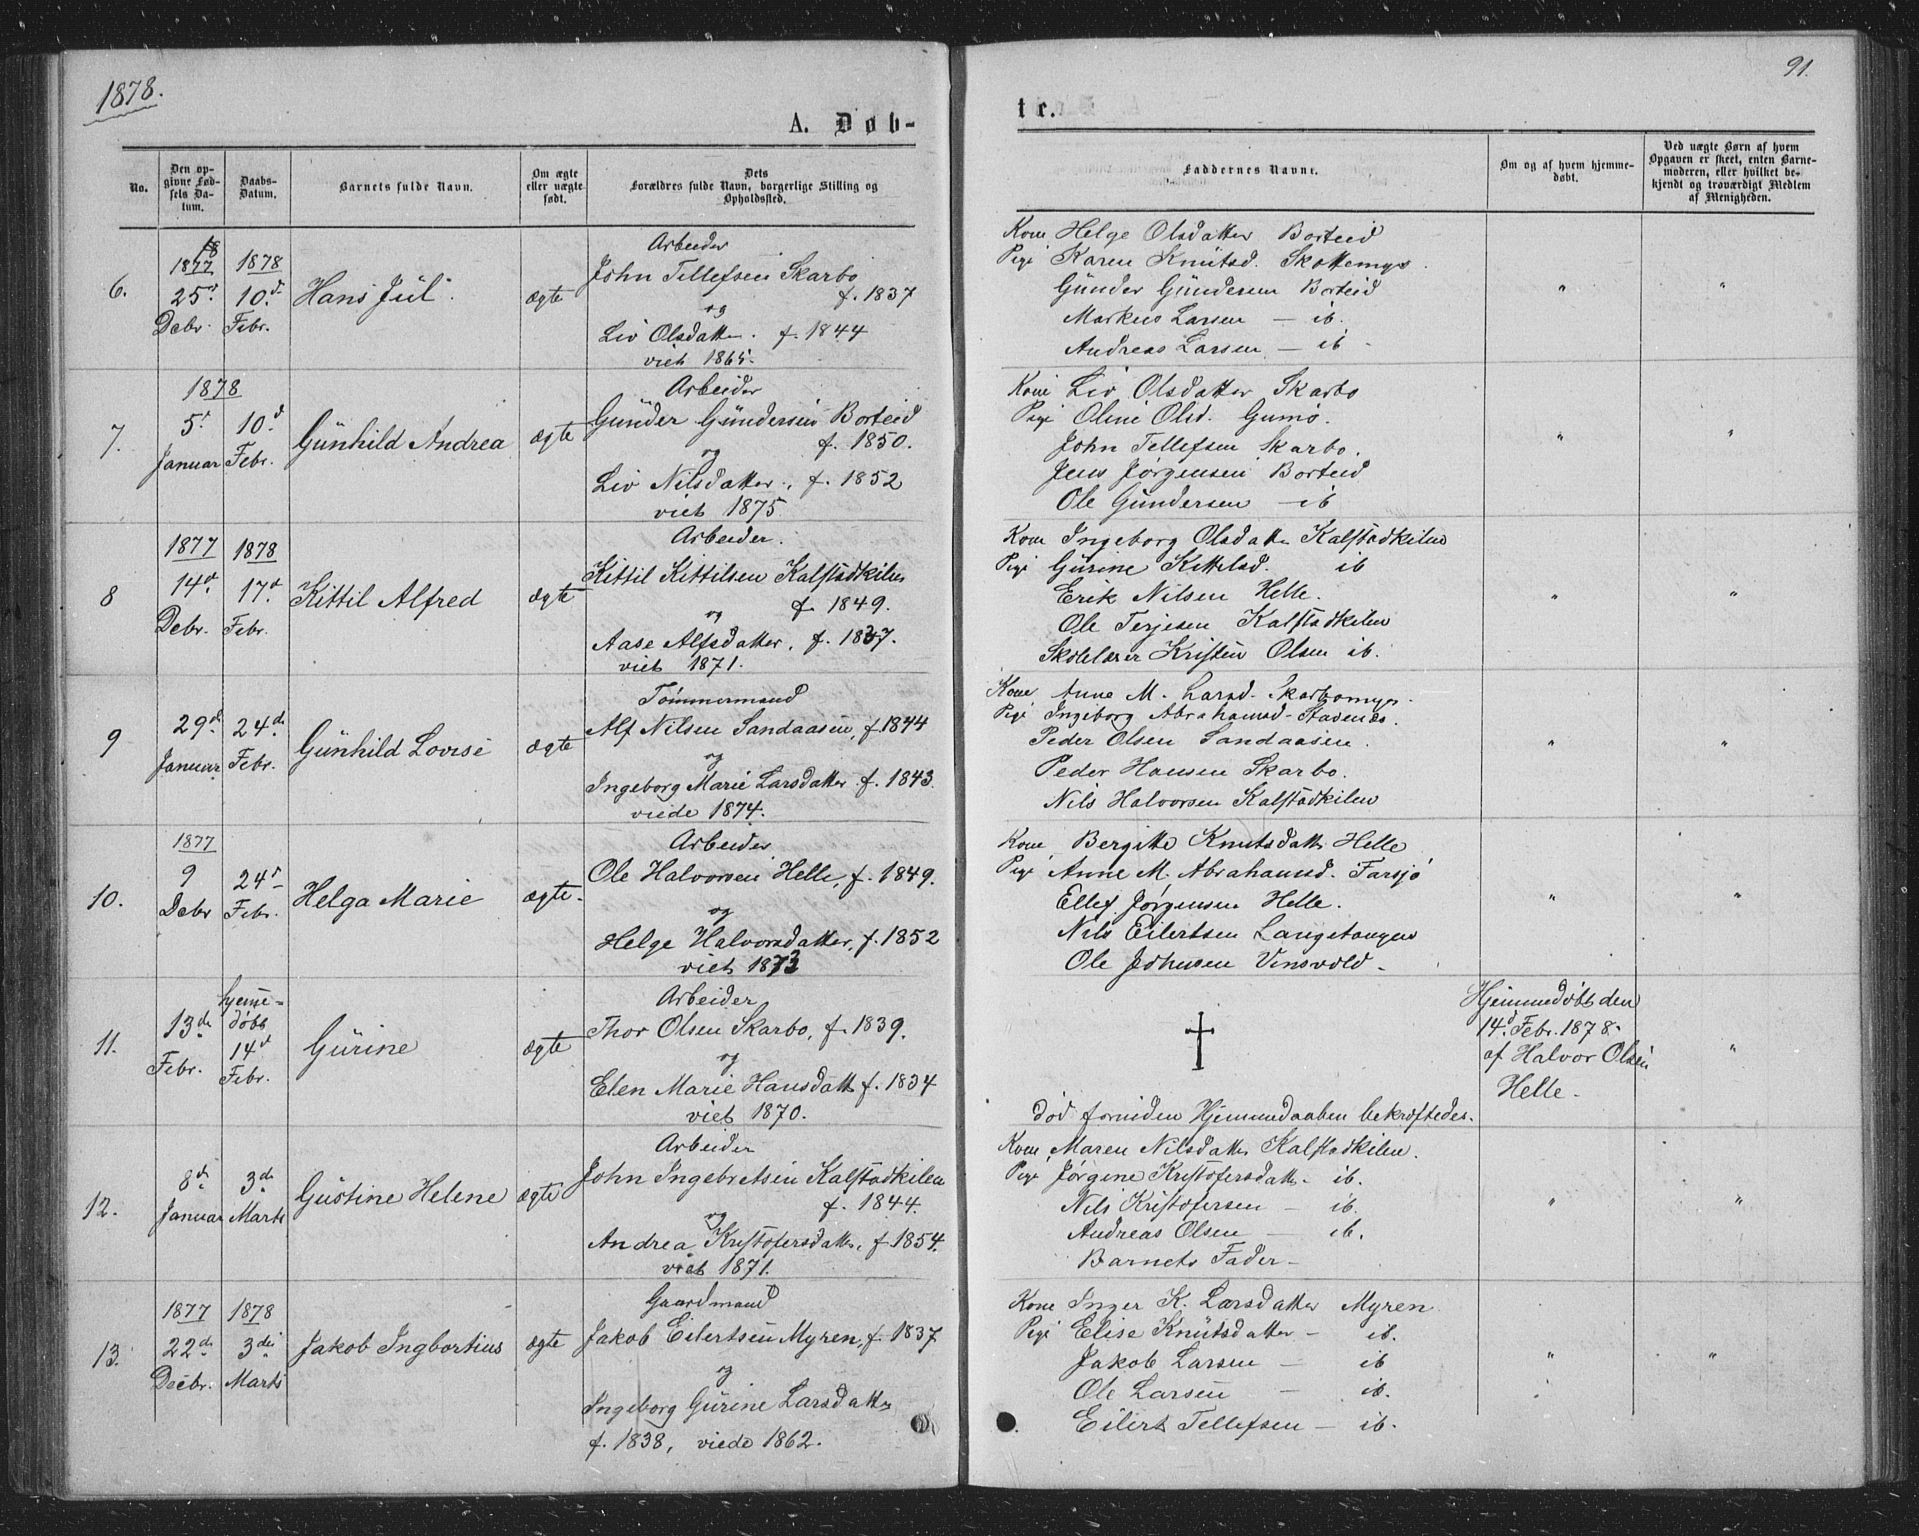 1878.
91.
A. Døb-
te.
No.
Den opgivne Fødsels Datum.
Daabs-Datum.
Barnets fulde Navn.
Om ægte eller uægte født.
Dets Forældres fulde Navn, borgerlige Stilling og Opholdssted.
Faddernes Navne.
Om og af hvem hjemmedøbt.
Ved uægte Børn af hvem Opgaven er skeet, enten Barnemoderen, eller hvilket bekjendt og troværdigt Medlem af Menigheden.
6.
1877
25d
Debr.
1878
10.d
Febr.
Hans Jul
ægte
Arbeider
John Tellefsen Skarbo
f. 1837
og
Liv Olsdatter. f. 1844
viet 1865.
Kone Helge Olsdatter Borteid
Pige Karen Knutsd. Skottemyr
Gunder Gundersen Borteid
Markus Larsen — ib.
Andreas Larsen — ib.
" "
7.
1878
5d
Januar
10.d
Febr.
Gunhild Andrea
ægte
Arbeider
Gunder Gundersen Borteid
f. 1850.
og
Liv Nilsdatter, f. 1852
viet 1875.
Kone Liv Olsdatter Skarbo
Pige Oline Olsd. Gumø.
John Tellefsen Skarbo.
Jens Jørgensen Borteid
Ole Gundersen — ib
" "
8
1877
14d
Debr.
1878
17.d
Febr.
Kittil Alfred
ægte
Arbeider.
Kittil Kittilsen Kalstadkilen
f. 1849.
og
Aase Alfsdatter, f. 1847.
viet 1871.
Kone Ingeborg Olsdatter Kalstadkilen
Pige Gurine Kittelsd. ib
Erik Nilsen Helle.
Ole Terjesen Kalstadkilen
Skolelærer Kristen Olsen ib.
" "
9
29.d
Januar
24d.
Febr.
Gunhild Lovise
ægte
Tømmermand
Alf Nilsen Sandaasen, f. 1844
og
Ingeborg Marie Larsdatter f. 1843.
viede 1874.
Kone Anne M. Larsd. Skarbomyr.
Pige Ingeborg Abrahamsd.
Peder Olsen Sandaasen.
Peder Hansen Skarbo.
Nils Halvorsen Kalstadkilen
" "
10.
1877
9
Debr
24d
Febr.
Helga Marie
ægte.
Arbeider
Ole Halvorsen Helle, f. 1849.
og
Helge Halvorsdatter, f. 1852
viet 1873
Kone Bergitte Knutsdatter Helle
Pige Anne M. Abrahamsd. Farsjø
Ellef Jørgensen Helle.
Nils Eilertsen Langetangen
Ole Johnsen Vinsvold.
" "
11.
13de
Febr.
hjemme-
døbt
14d
Febr.
Gurine
ægte
Arbeider
Thor Olsen Skarbo, f. 1839.
og
Elen Marie Hansdatter f. 1834
viet 1870.
død forinden Hjemmedaaben bekræftedes.
Hjemmedøbt den
14.d Febr. 1878.
af Halvor Olsen
Helle.
"
12.
8de
Januar
3de
Marts
Gustine Helene
ægte
Arbeider
John Ingebretsen Kalstadkilen
f. 1844.
og
Andrea Kristofersdatter, f. 1854.
viet 1871.
Kone Maren Nilsdatter Kalstadkilen.
Pige Jørgine Kristofersdatter — ib.
Nils Kristofersen — ib.
Andreas Olsen — ib.
Barnets Fader.
" "
13.
1877
22de
Decbr.
1878
3die
Marts
Jakob Ingbortius
ægte
Gaardmand
Jakob Eilertsen Myren, f. 1837
og
Ingeborg Gurine Larsdatter
f. 1838, viede 1862.
Kone Inger K. Larsdatter Myren
Pige Elise Knutsdatter — ib.
Jakob Larsen — ib
Ole Larsen — ib.
Eilert Tellefsen — ib.
" "